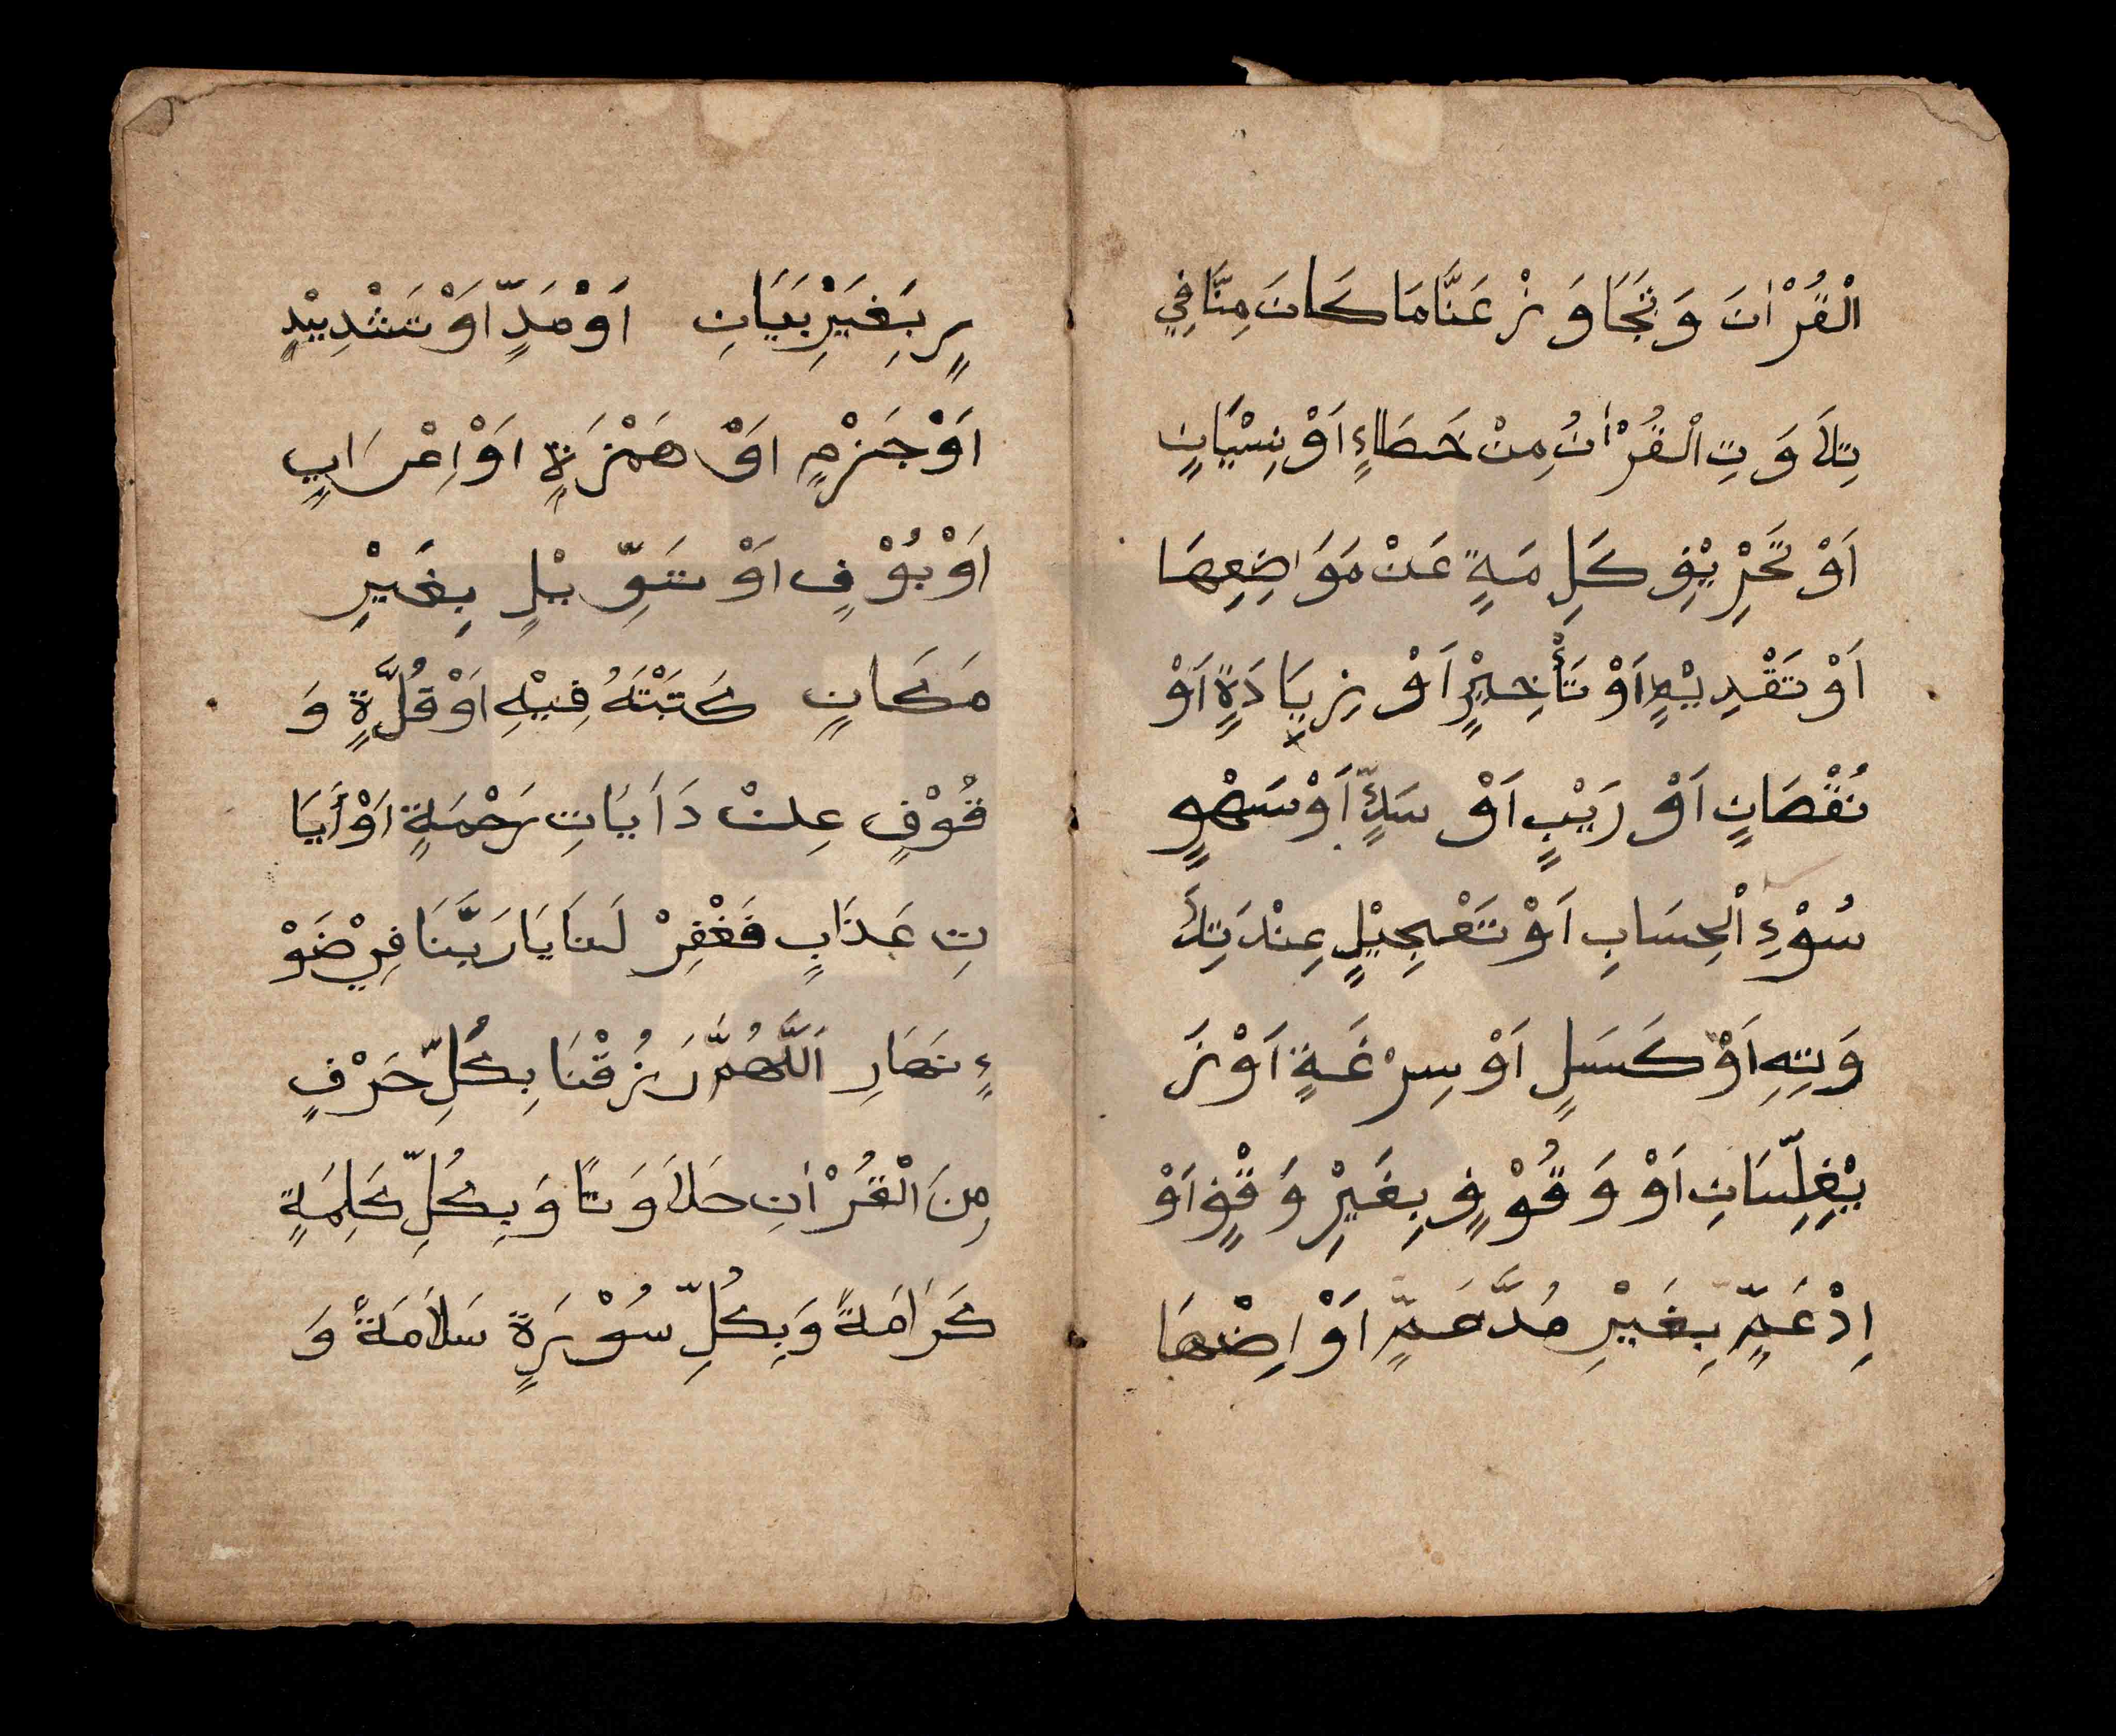 الْقُرْاٰنَ وَ تَجَاوَزْ عَنَّا مَا كَانَ مِنَّا فِيْ
تِلَا وَتِ الْقُرْاٰنُ مِنْ خَطَاءٍ اَوْ نِسْيَانٍ
اَوْ تَحْرِيْفِ كَلِمَةٍ عَنْ مَوَاضِعِهَا
اَوْ تَقْدِيْمٍ اَوْ تَأْخِيْرٍ اَوْ زِيَادَةٍ اَوْ
نُقْصَانٍ اَوْ رَيْبٍ اَوْ سَكٍّ اَوْ سَهْوٍ
سُوْءِ الْحِسَابِ اَوْ تَعْجِيْلٍ عِنْدَ تِلَ
وَتِهِ اَوْ كَسَلٍ اَوْ سِرْعَةٍ اَوْ زَ
يْغِلِّسَانِ اَوْ وَقُوْفٍ بِغَيْرِ وَقْفٍ اَوْ
اِدْغَمٍّ بِغَيْرِ مُدَّغَمٍّ اَوْ اِضْهَا
رٍ بِغَيْرِ بَيَانِ اَوْ مَدٍّ اَوْ تَشْدِيْدٍ
اَوْ جَزْمٍ اَوْ هَمْزَةٍ اَوْ اِعْرَابٍ
اَوْ بُوْفٍ اَوْ تَوِّيْلٍ بِغَيْرِ
مَكَانٍ كَتَبْتَهُ فِيْهِ اَوْ قُلَّةٍ وَ
قُوْفٍ عِنْدَ اَيَاتِ رَحْمَةٍ اَوْ أَيَا
تِ عَذَابٍ فَغْفِرْ لَنَا يَا رَبَّنَا فِيْ ضَوْ
ءٍ نَهَارِ اَللّٰهُمَّ رَزُقْنَا بِكُلِّ حَرْفٍ
مِنَ الْقُرْاٰنِ حَلَاوَتًا وَ بِكُلِّ كَلِمَةٍ
كَرَامَةً وَبِكُلِّ سُوْرَةٍ سَلَامَةً وَ